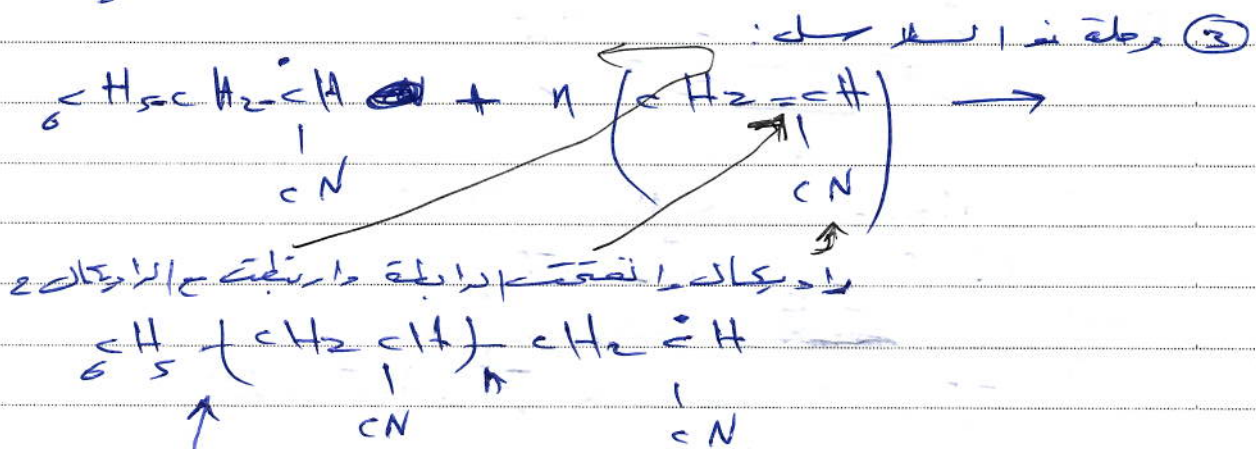 ③ مرحلة نمو السلاسل:
C₆H₅-CH₂-ĊH + n (CH₂=CH) →
CN CN
راديكال انفتحت الرابطة وارتبطت مع الراديكال
C₆H₅-(CH₂ CH)-ₙ CH₂ ĊH
CN CN